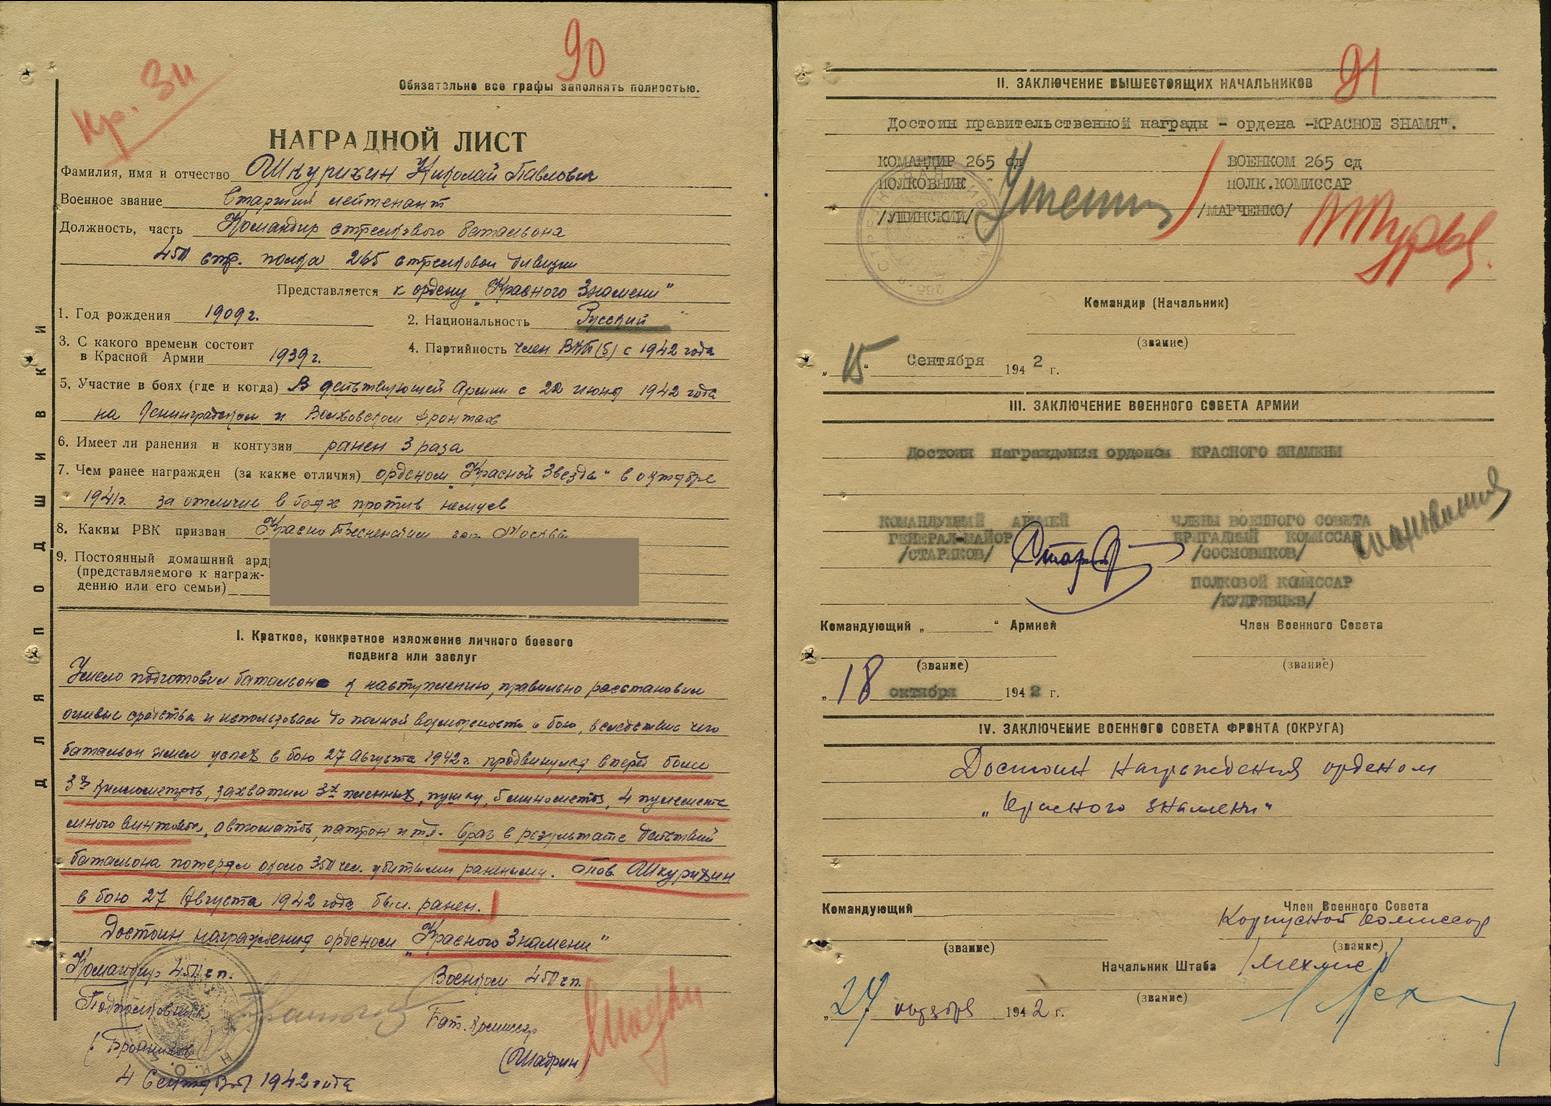 90
Кр. Зн
Обязательно все графы заполнять полностью.
НАГРАДНОЙ ЛИСТ
Фамилия, имя и отчество Шкурихин Николай Павлович
Военное звание Старший лейтенант
Должность, часть Командир стрелкового батальона
450 стр. полка 265 стрелковой дивизии
Представляется к ордену „Красного Знамени"
1. Год рождения 1909 г.
2. Национальность Русский
3. С какого времени состоит
в Красной Армии 1939 г.
4. Партийность член ВКП(б) с 1942 года
5. Участие в боях (где и когда) В действующей Армии с 22 июня 1942 года
на Ленинградском и Волховском фронтах
6. Имеет ли ранения и контузии ранен 3 раза
7. Чем ранее награжден (за какие отличия) орденом „Красной Звезды" в октябре
1941 г. за отличие в боях против немцев
8. Каким РВК призван Красно Пресненским гор. Москвы
9. Постоянный домашний
(представляемого к награж-
дению или его семьи)
ДЛЯ ПОДШИВКИ
I. Краткое, конкретное изложение личного боевого
подвига или заслуг
Умело подготовил батальон к наступлению, правильно расстановил
огневые средства и использовал до полной возможности в бою, вследствие чего
батальон имел успех в бою 27 Августа 1942 г. продвинулся вперед более
3х километров, захватил 3х пленных, пушку, 6 минометов, 4 пулемета
много винтовок, автоматов, патрон и т.д. Враг в результате действий
батальона потерял около 350 чел. убитыми ранеными. Тов. Шкурихин
в бою 27 Августа 1942 года был ранен.
Достоин награждения орденом „Красного Знамени"
Командир 450 сп. Военком 450 сп.
Подполковник Бат. Комиссар
(Шадрин)
4 Сентября 1942 года
91
II. ЗАКЛЮЧЕНИЕ ВЫШЕСТОЯЩИХ НАЧАЛЬНИКОВ
Достоин правительственной награды - ордена -КРАСНОЕ ЗНАМЯ".
КОМАНДИР 265 сд ВОЕНКОМ 265 сд
ПОЛКОВНИК ПОЛК.КОМИССАР
/УШИНСКИЙ/ /МАРЧЕНКО/
Командир (Начальник)
(звание)
„15" Сентября 1942 г.
III. ЗАКЛЮЧЕНИЕ ВОЕННОГО СОВЕТА АРМИИ
Достоин награждения орденом КРАСНОГО ЗНАМЕНИ
КОМАНДУЮЩИЙ АРМИЕЙ ЧЛЕНЫ ВОЕННОГО СОВЕТА
ГЕНЕРАЛ-МАЙОР БРИГАДНЫЙ КОМИССАР
/СТАРИКОВ/ /СОСНОВИКОВ/
ПОЛКОВОЙ КОМИССАР
/КУДРЯВЦЕВ/
Командующий „ " Армией Член Военного Совета
(звание) (звание)
„18 октября 1942 г.
IV. ЗАКЛЮЧЕНИЕ ВОЕННОГО СОВЕТА ФРОНТА (ОКРУГА)
Достоин награждения орденом
„Красного знамени"
Командующий Член Военного Совета
Корпусной комиссар
(звание) (звание)
Начальник Штаба /Мехлис
(звание)
„27 октября 1942 г.